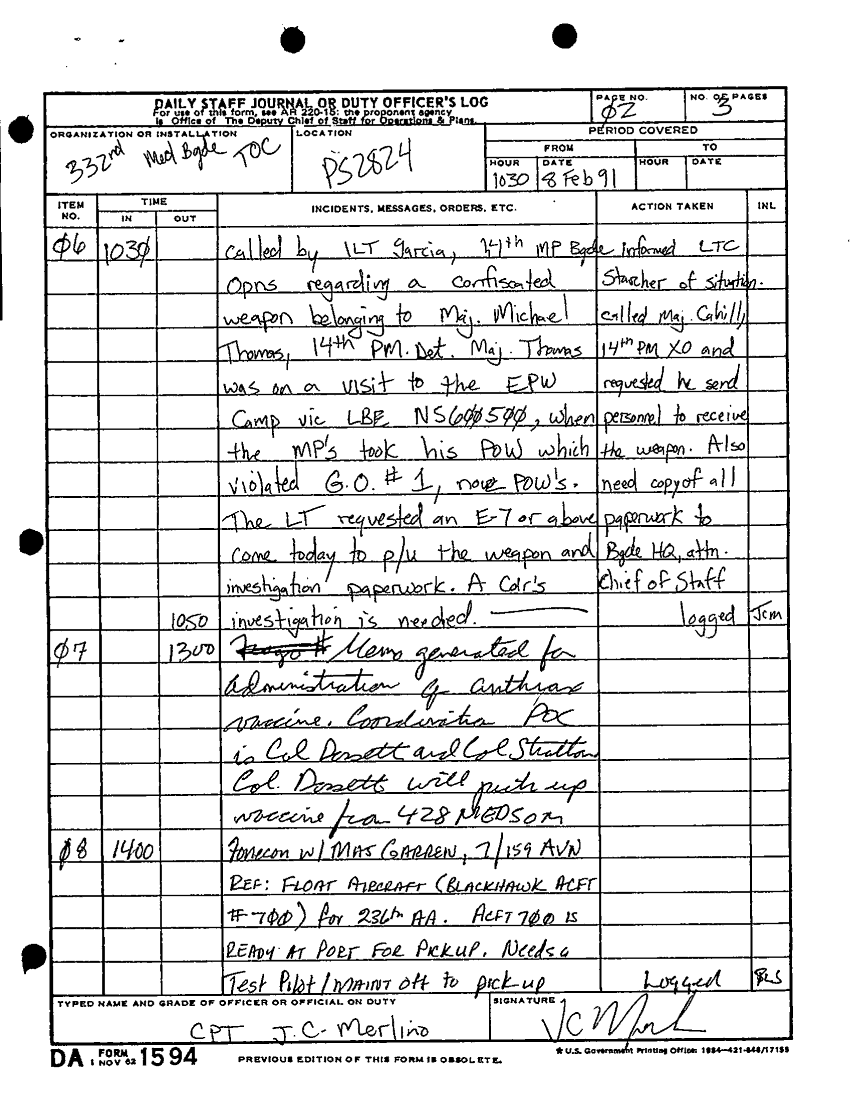 DAILY STAFF JOURNAL OR DUTY OFFICER'S LOG
For use of this form, see AR 220-15; the proponent agency
is Office of The Deputy Chief of Staff for Operations & Plans.
PAGE NO.
02
NO. OF PAGES
3
ORGANIZATION OR INSTALLATION
332nd Med Bgde TOC
LOCATION
PS2824
PERIOD COVERED
FROM
TO
HOUR
1030
DATE
8 Feb 91
HOUR
DATE
ITEM NO.
TIME
IN
OUT
INCIDENTS, MESSAGES, ORDERS, ETC.
ACTION TAKEN
INL
06 1030 called by 1LT Garcia, MP Bgde informed LTC
Opns regarding a confiscated Starcher of situation.
weapon belonging to Maj. Michael called Maj. Cahill,
Thomas, 14th PM. Det. Maj. Thomas 14th PM XO and
was on a visit to the EPW requested he send
Camp vic LBE NS600500, when personnel to receive
the MP's took his POW which the weapon. Also
violated G.O. # 1, no POW's. need copy of all
The LT requested an E-7 or above paperwork to
come today to p/u the weapon and Bgde HQ, attn.
investigation paperwork. A Cdr's Chief of Staff
1050 investigation is needed. logged Jcm
07 1300 Memo generated for
administration of anthrax
vaccine. Coordination POC
is Col Dossett and Col Stratton
Col. Dossett will pick up
vaccine from 428 MEDSOM
08 1400 Fonecon w/ MAJ GARREN, 7/159 AVN
REF: FLOAT AIRCRAFT (BLACKHAWK ACFT
#-700) for 236th AA. ACFT 700 IS
READY AT PORT FOR PICKUP. Needs a
Test Pilot/MAINT Off to pick up Logged
TYPED NAME AND GRADE OF OFFICER OR OFFICIAL ON DUTY
CPT J.C. Merlino
SIGNATURE
DA FORM 1 NOV 62 1594
PREVIOUS EDITION OF THIS FORM IS OBSOLETE.
★ U.S. Government Printing Office: 1984-421-646/17158